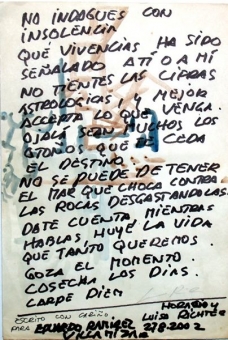 NO INDAGUES CON
INSOLENCIA
QUÉ VIVENCIAS HA SIDO
SEÑALADO A TÍ O A MÍ
NO TIENTES LAS CIFRAS
ASTROLOGICAS, Y MEJOR
ACCEPTA LO QUE VENGA.
OJALÁ SEAN MUCHOS LOS
OTOÑOS QUE TE CEDA
EL DESTINO.
NO SE PUEDE DETENER
EL MAR QUE CHOCA CONTRA
LAS ROCAS DESGASTANDOLAS.
DATE CUENTA, MIENTRAS
HABLAS HUYE LA VIDA
QUE TANTO QUEREMOS.
GOZA EL MOMENTO.
COSECHA LOS DIAS.
CARPE DIEM
HORACIO Y
LUISA RICHTER
ESCRITO CON CARIÑO
PARA EDUARDO RAMIREZ 27.8.2002
VILLAMIZAR